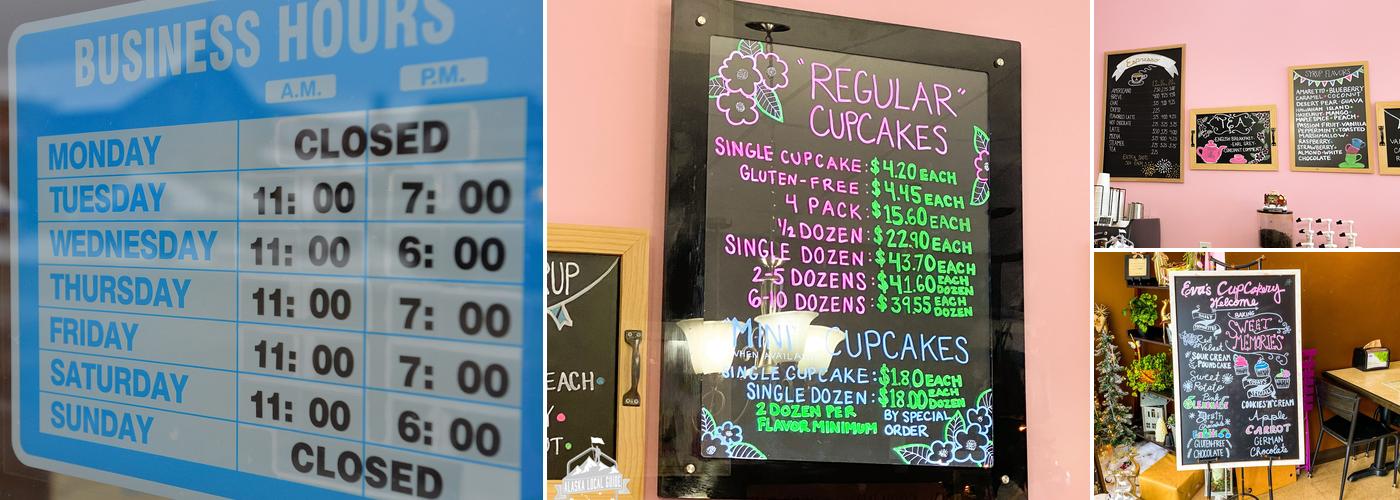 BUSINESS HOURS
A.M. P.M.
MONDAY CLOSED
TUESDAY 11: 00 7: 00
WEDNESDAY 11: 00 6: 00
THURSDAY 11: 00 7: 00
FRIDAY 11: 00 7: 00
SATURDAY 11: 00 6: 00
SUNDAY CLOSED
UP
EACH
ALASKA LOCAL GUIDE
"REGULAR"
CUPCAKES
SINGLE CUPCAKE: $4.20 EACH
GLUTEN-FREE: $4.45 EACH
4 PACK: $15.60 EACH
1/2 DOZEN: $22.90 EACH
SINGLE DOZEN: $43.70 EACH
2-5 DOZENS: $41.60 EACH DOZEN
6-10 DOZENS: $39.55 EACH DOZEN
MINI CUPCAKES
WHEN AVAILA
SINGLE CUPCAKE: $1.80 EACH
SINGLE DOZEN: $18.00 EACH DOZEN
2 DOZEN PER
FLAVOR MINIMUM
BY SPECIAL
ORDER
Espresso
AMERICANO
BREVE
CHAI
FLAVORED LATTE
HOT CHOCOLATE
LATTE
MOCHA
STEAMER
TEA
TEA
ENGLISH BREAKFAST
EARL GREY
CONSTANT COMMENT
SYRUP FLAVORS
AMARETTO•BLUEBERRY
CARAMEL•COCONUT
DESERT PEAR•GUAVA
HAWAIIAN ISLAND•
HAZELNUT•MANGO•
MAPLE SPICE•PEACH•
PASSION FRUIT•VANILLA
PEPPERMINT•TOASTED
MARSHMALLOW•
RASPBERRY•
STRAWBERRY•
ALMOND•WHITE
CHOCOLATE
Eva's CupCakery
Welcome
DAILY
FAVORITES
Red
Velvet
SOUR CREAM
POUND CAKE
Sweet
Potato
Pink
LEMONADE
GLUTEN-FREE
CHOCOLATE
BAKING
SWEET
MEMORIES
TODAY'S
SPECIALS
COOKIES 'N' CREAM
Apple
CARROT
GERMAN
Chocolate